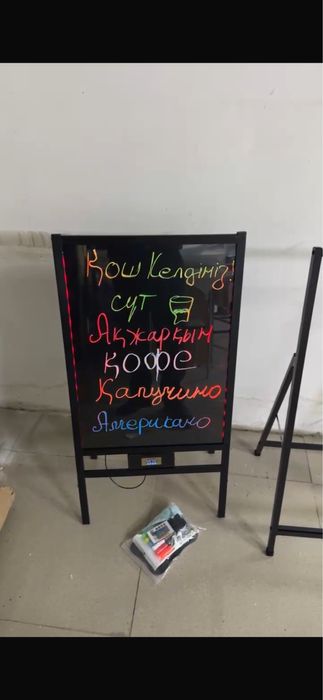 Қош Келдіңіз!
сүт
Ақжарқын
кофе
Капучино
Американо